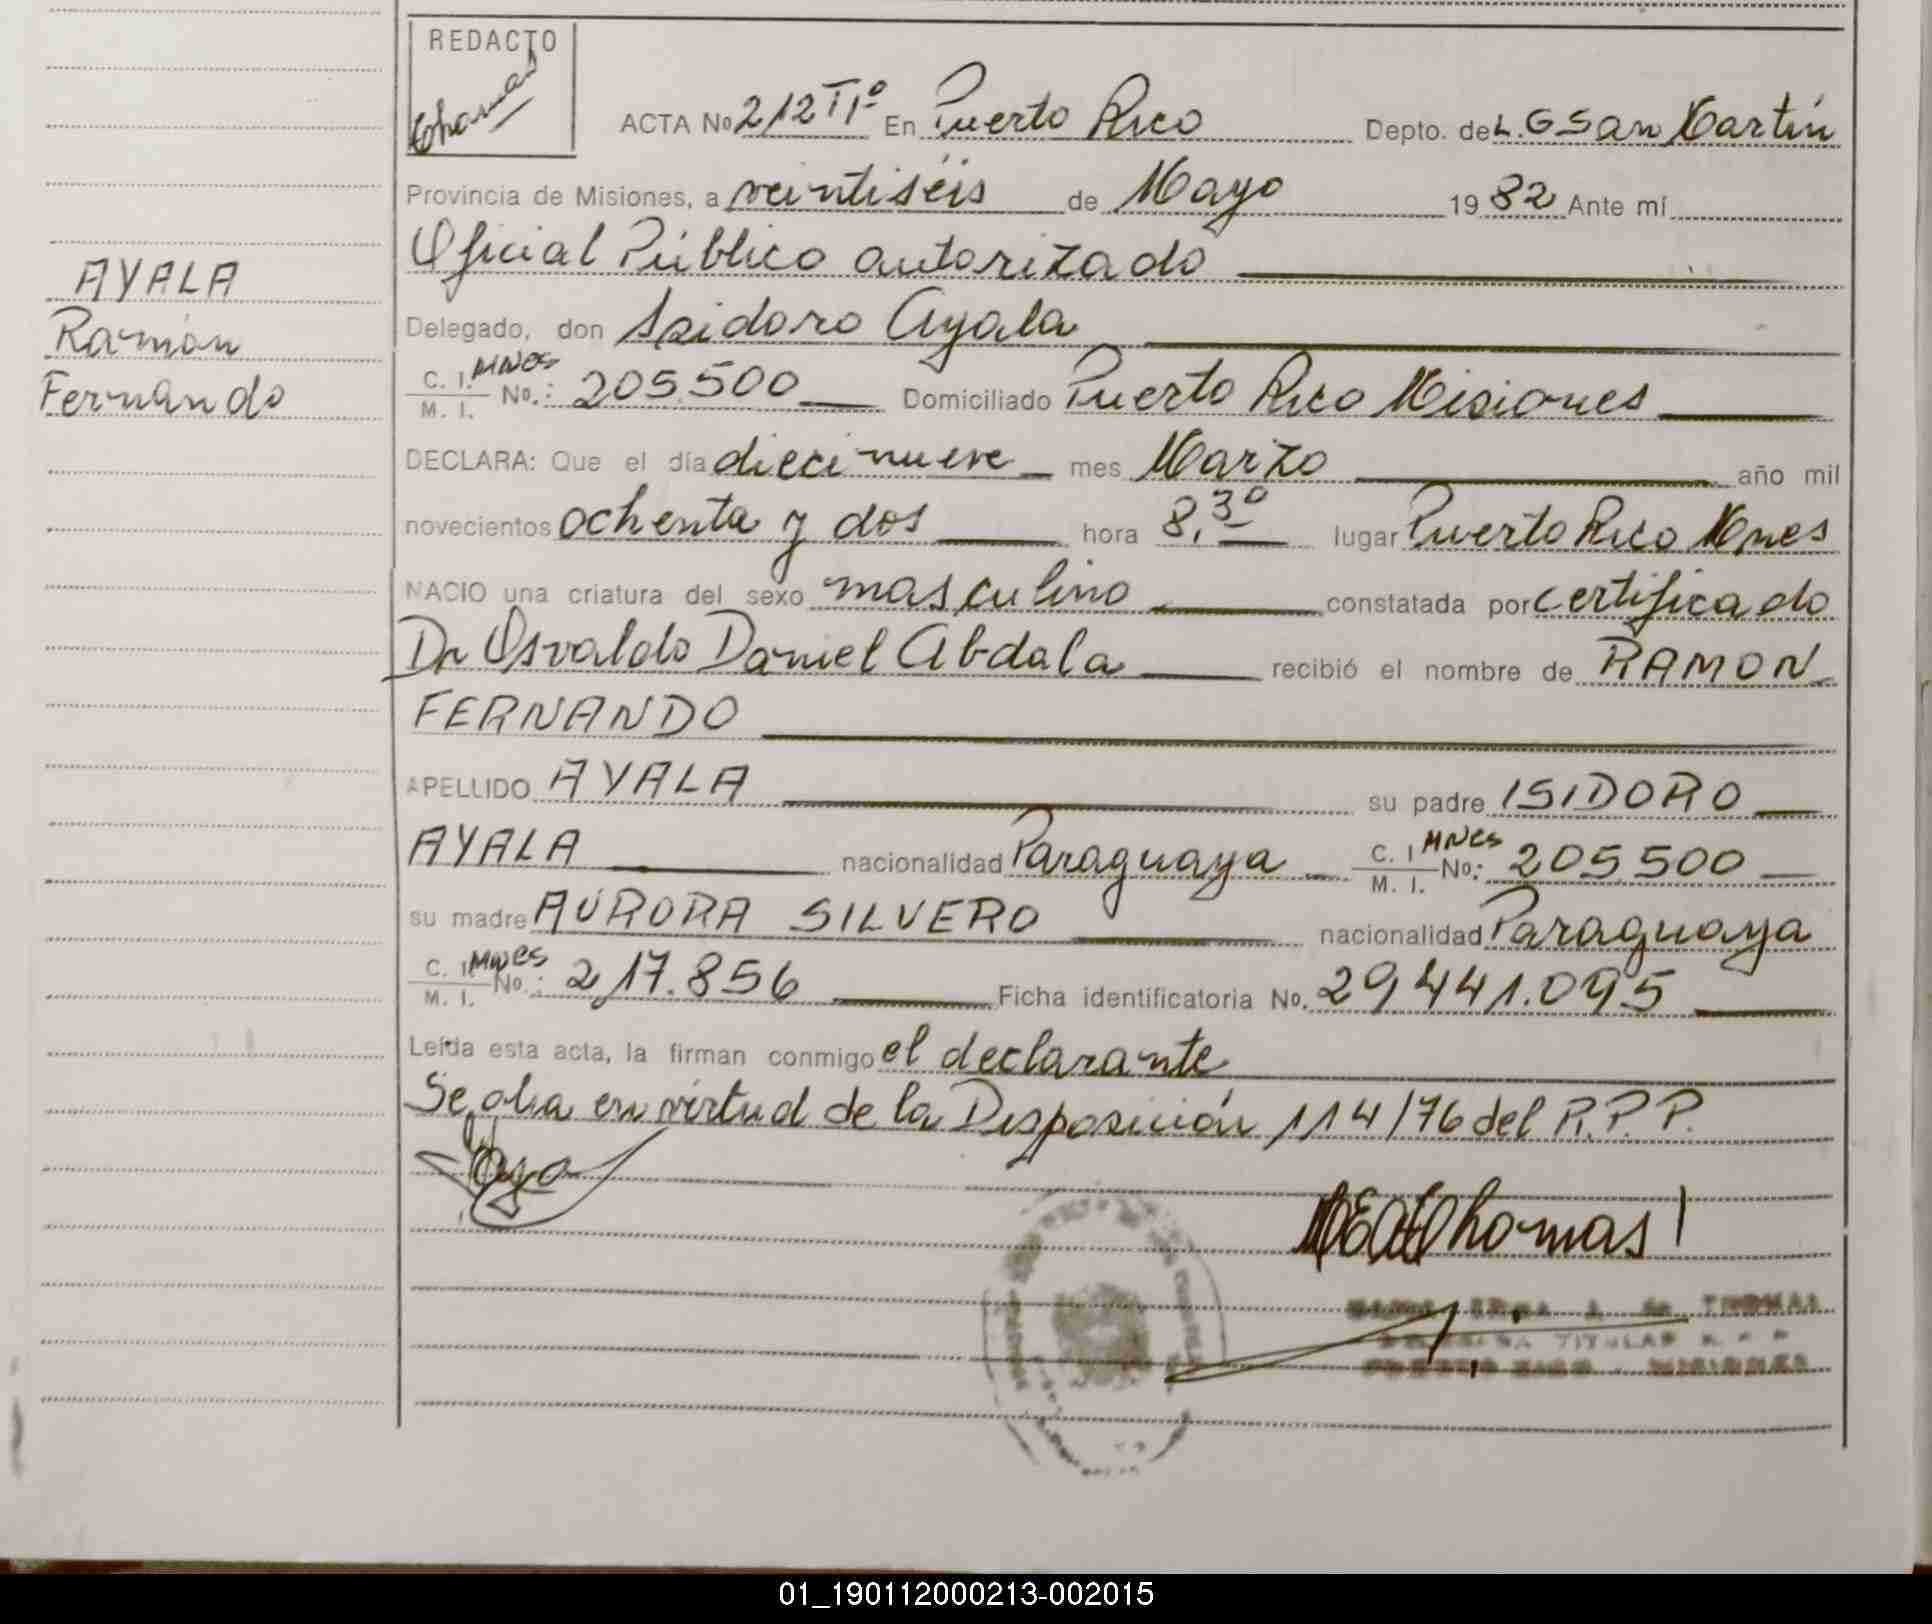 REDACTO
Thomas
ACTA No 212 TIº En Puerto Rico Depto. de L. G San Martín
Provincia de Misiones, a veintiséis de Mayo 1982 Ante mí
Oficial Público autorizado
Delegado, don Isidoro Ayala
C. I. MNES
M. I. No.: 205.500 Domiciliado Puerto Rico Misiones
DECLARA: Que el día diecinueve mes Marzo año mil
novecientos ochenta y dos hora 8,30 lugar Puerto Rico Mnes
NACIO una criatura del sexo masculino constatada por certificado
Dr Osvaldo Daniel Abdala recibió el nombre de RAMON
FERNANDO
APELLIDO AYALA su padre ISIDORO
AYALA nacionalidad Paraguaya C. I MNES
M. I. No: 205.500
su madre AURORA SILVERO nacionalidad Paraguaya
C. I. MNES
M. I. No.: 217.856 Ficha identificatoria No. 29,441.095
Leída esta acta, la firman conmigo el declarante
Se in virtud de la Disposición 114/76 del R.P.P.
Thomas
de THOMAS
TITULAR
MISIONES
AYALA
Ramón
Fernando
01_190112000213-002015